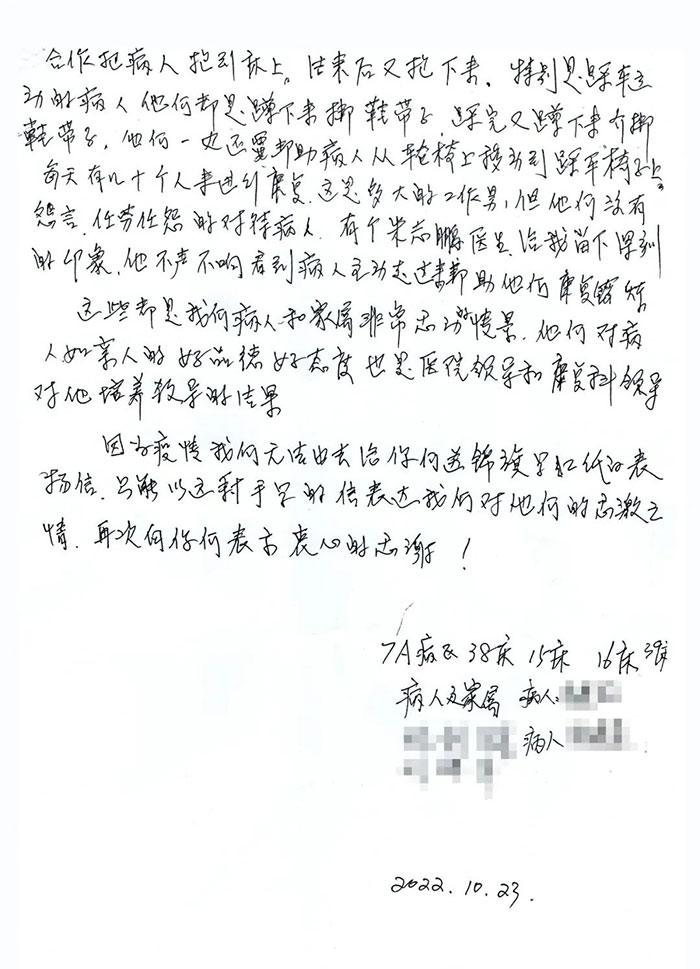 合作把病人抱到床上。结束后又抱下来。特别是踩车运
动的病人他们都是蹲下来绑鞋带子,踩完又蹲下来介绑
鞋带子,他们一也还要帮助病人从轮椅上移动到踩车椅子上。
每天有几十个人来进行康复。这是多大的工作量,但他们没有
怨言.任劳任怨的对待病人.有个朱志鹏医生给我留下深刻
的印象,他不声不响看到病人主动走过来帮助他们康复锻炼
这些都是我们病人和家属非常感动的情景.他们对病
人如亲人的好品德好态度也是医院领导和康复科领导
对他培养教导的结果
因为疫情我们无法出去给你们送锦旗写红纸的表
扬信.只能以这封手写的信表达我们对他们的感激之
情.再次向你们表示衷心的感谢!
7A病区38床 15床 16床 39床
病人及家属 病人:
病人
2022.10.23.